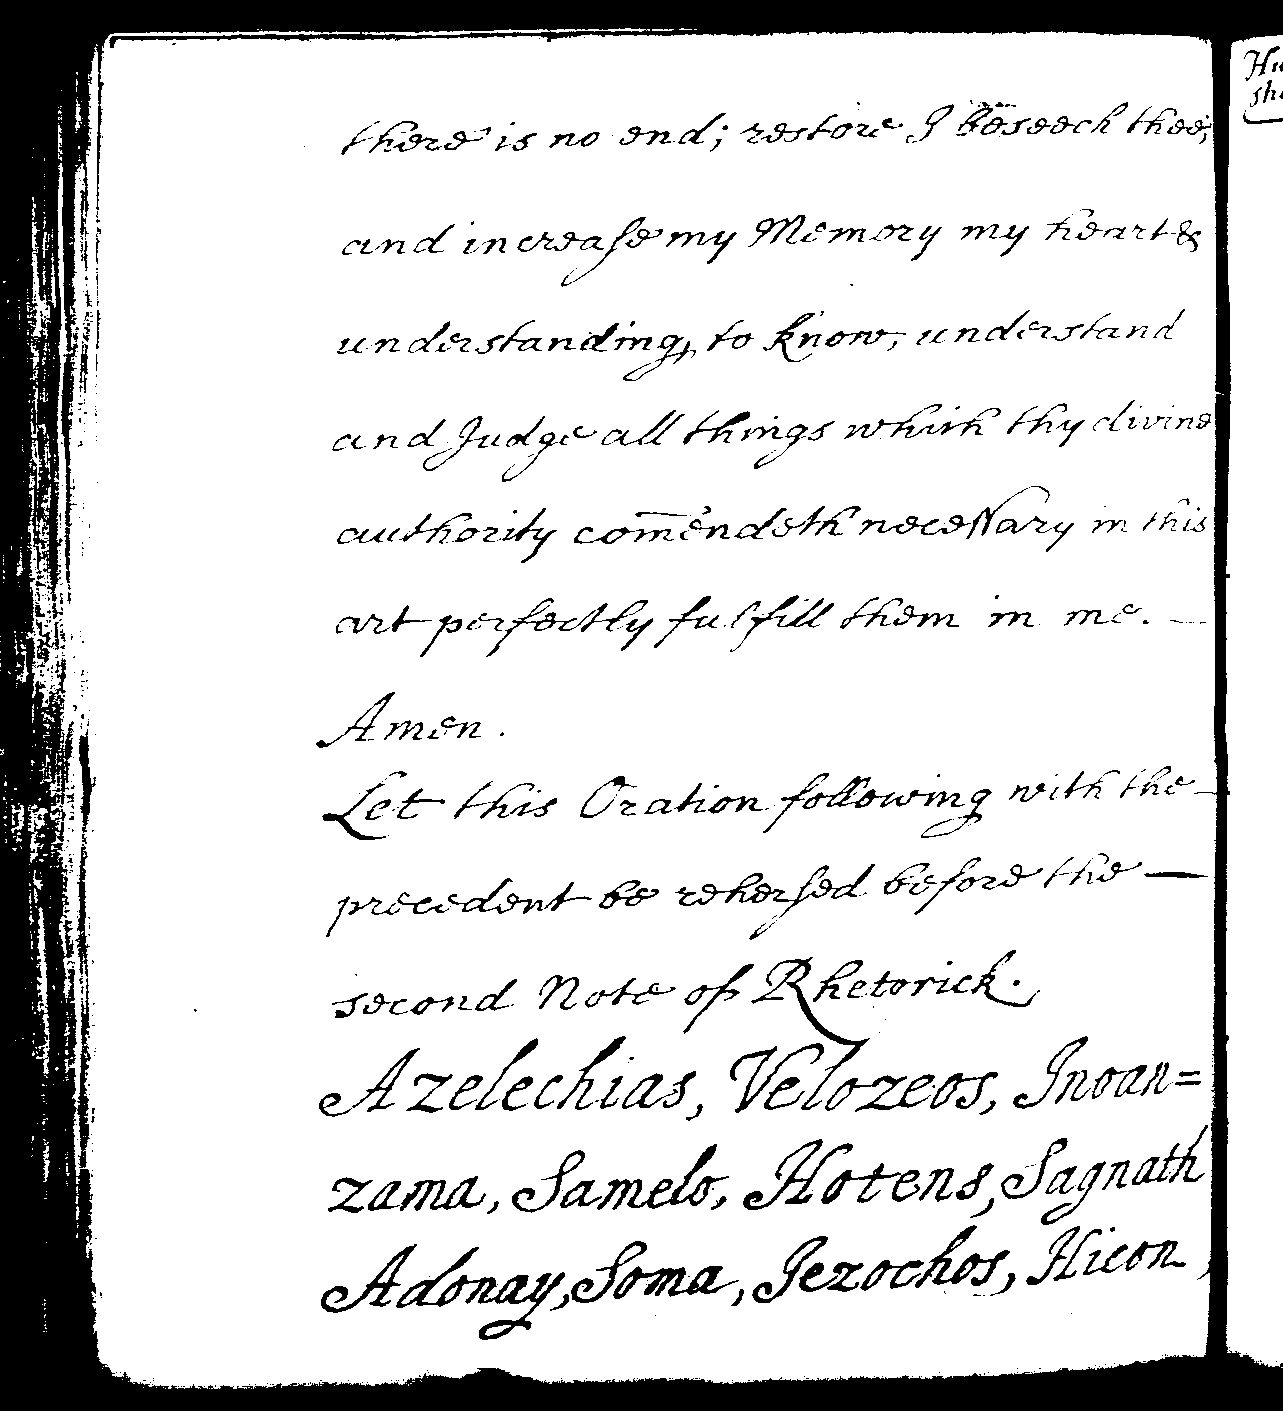 there is no end; restore I beseech thee,
and increase my Memory my heart &
understanding, to know, understand
and Judge all things which thy divine
authority com̄endeth necessary in this
art perfectly fulfill them in me. —
Amen.
Let this Oration following with the —
precedent be rehersed before the —
second Note of Rhetorick.
Azelechias, Velozeos, Inoan=
zama, Samelo, Hotens, Sagnath
Adonay, Soma, Jezochos, Hicon,